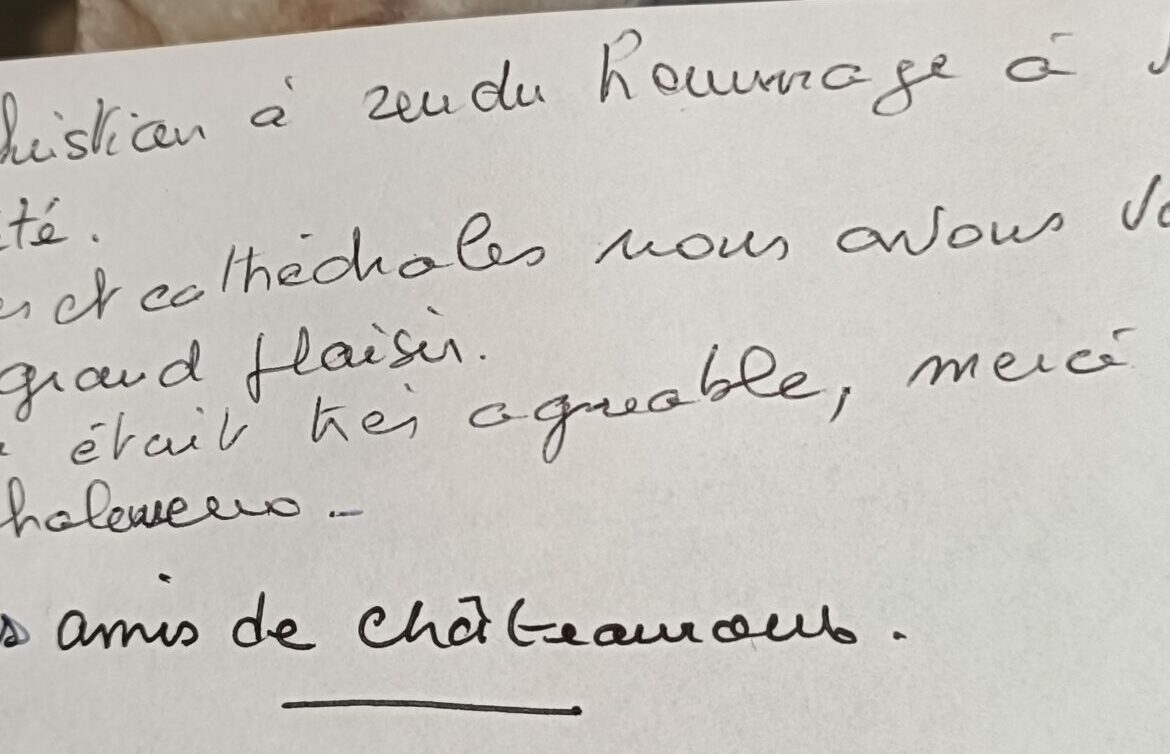 hristian à rendu hommage à
té.
et cathédrales nous avons
grand plaisir.
était très agréable, merci
haleureux.
amis de châteauroux.